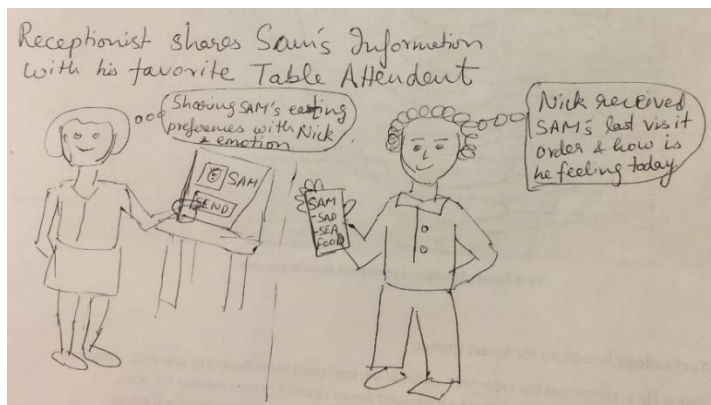 Receptionist shares Sam's Information
with his favorite Table Attendent
Sharing SAM's eating
preferences with Nick
& emotion
SAM
SEND
Nick received
SAM's last visit
order & how is
he feeling today
SAM
-SAD
-SEA
FOOD